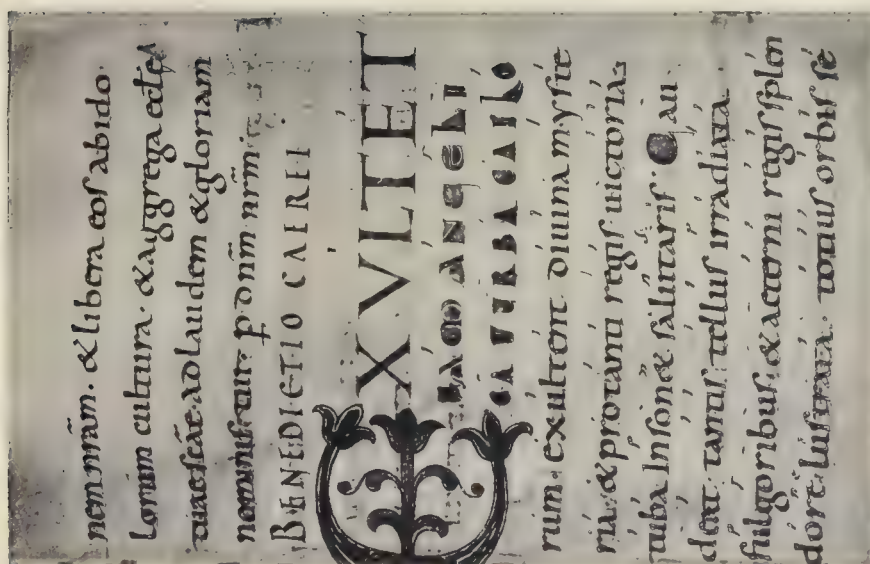 nem nr̄am. & libera eos ab ido·
lorum cultura. & aggrega eccl̄
tuae s̄cae ad laudem & gloriam
nominis tui. p̱ dn̄m nr̄m
BENEDICTIO CAEREI
EXVLTET
IAM ANGELI
CA TURBA CAELO
rum. exultent diuina myste
ria. & pro tanti regis uictoria.
tuba Inson& salutaris. Gau
deat tantis tellus irradiata.
fulgoribus. & aeterni regis splen
dore lustrata. totius orbis se